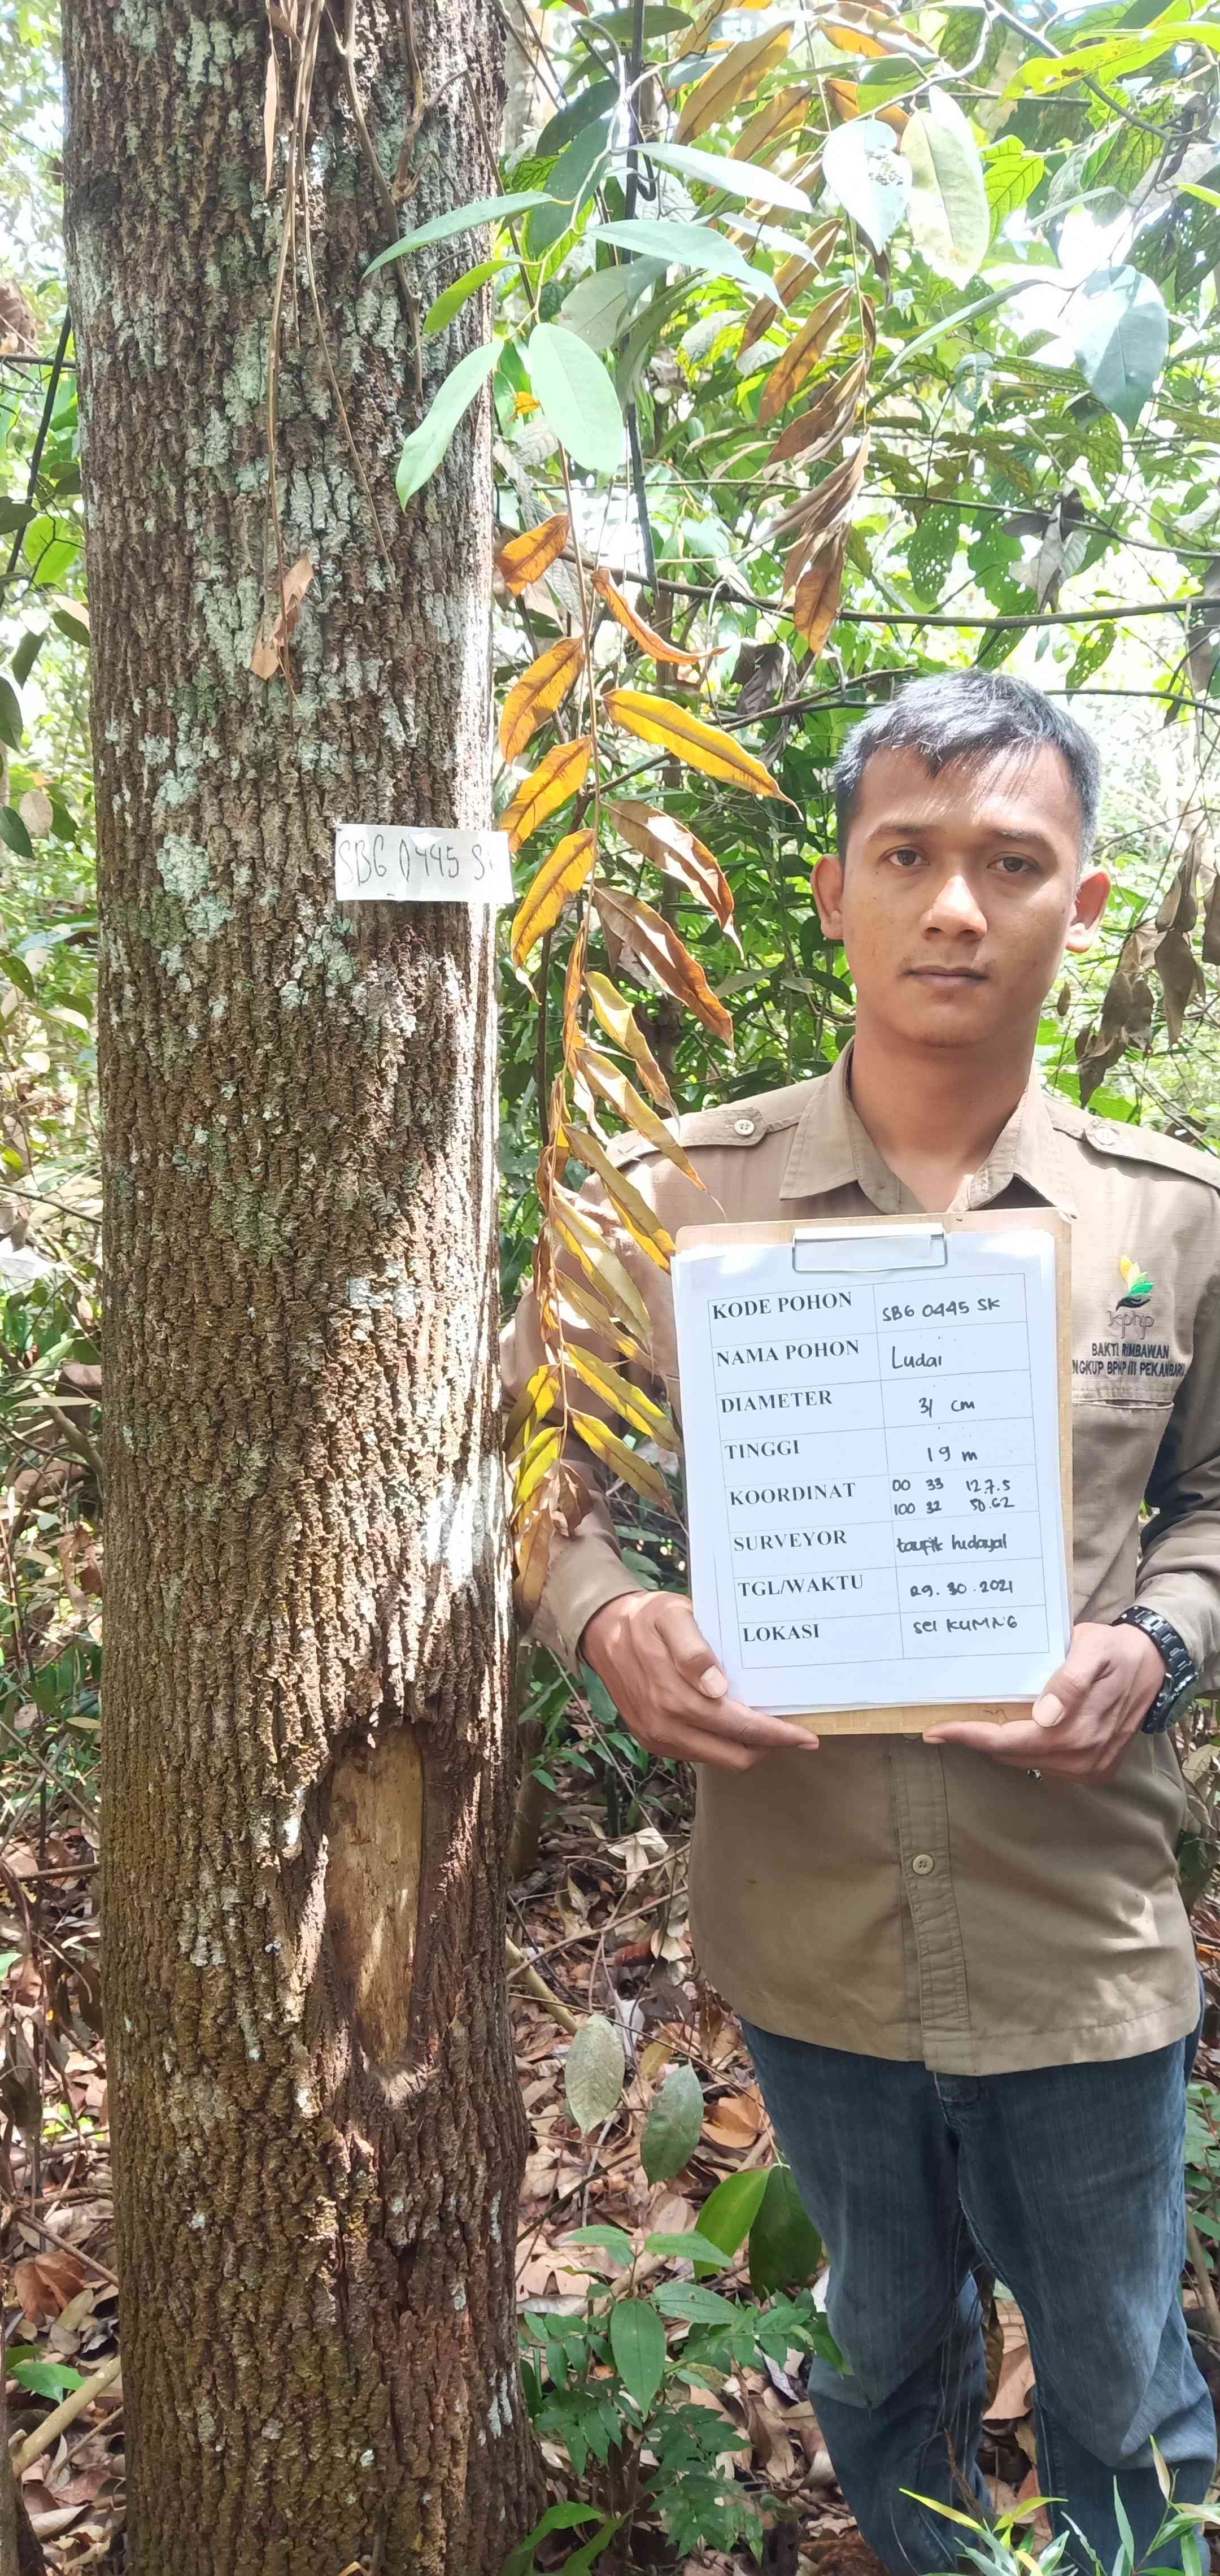 SBG 0445 S
KODE POHON SBG 0445 SK
NAMA POHON Ludai
DIAMETER 31 cm
TINGGI 19 m
KOORDINAT 00 33 127.5
100 32 50.62
SURVEYOR taufik hidayat
TGL/WAKTU 29.30.2021
LOKASI sei KUMNG
kphp
BAKTI RIMBAWAN
NGKUP BPHP III PEKANBARU